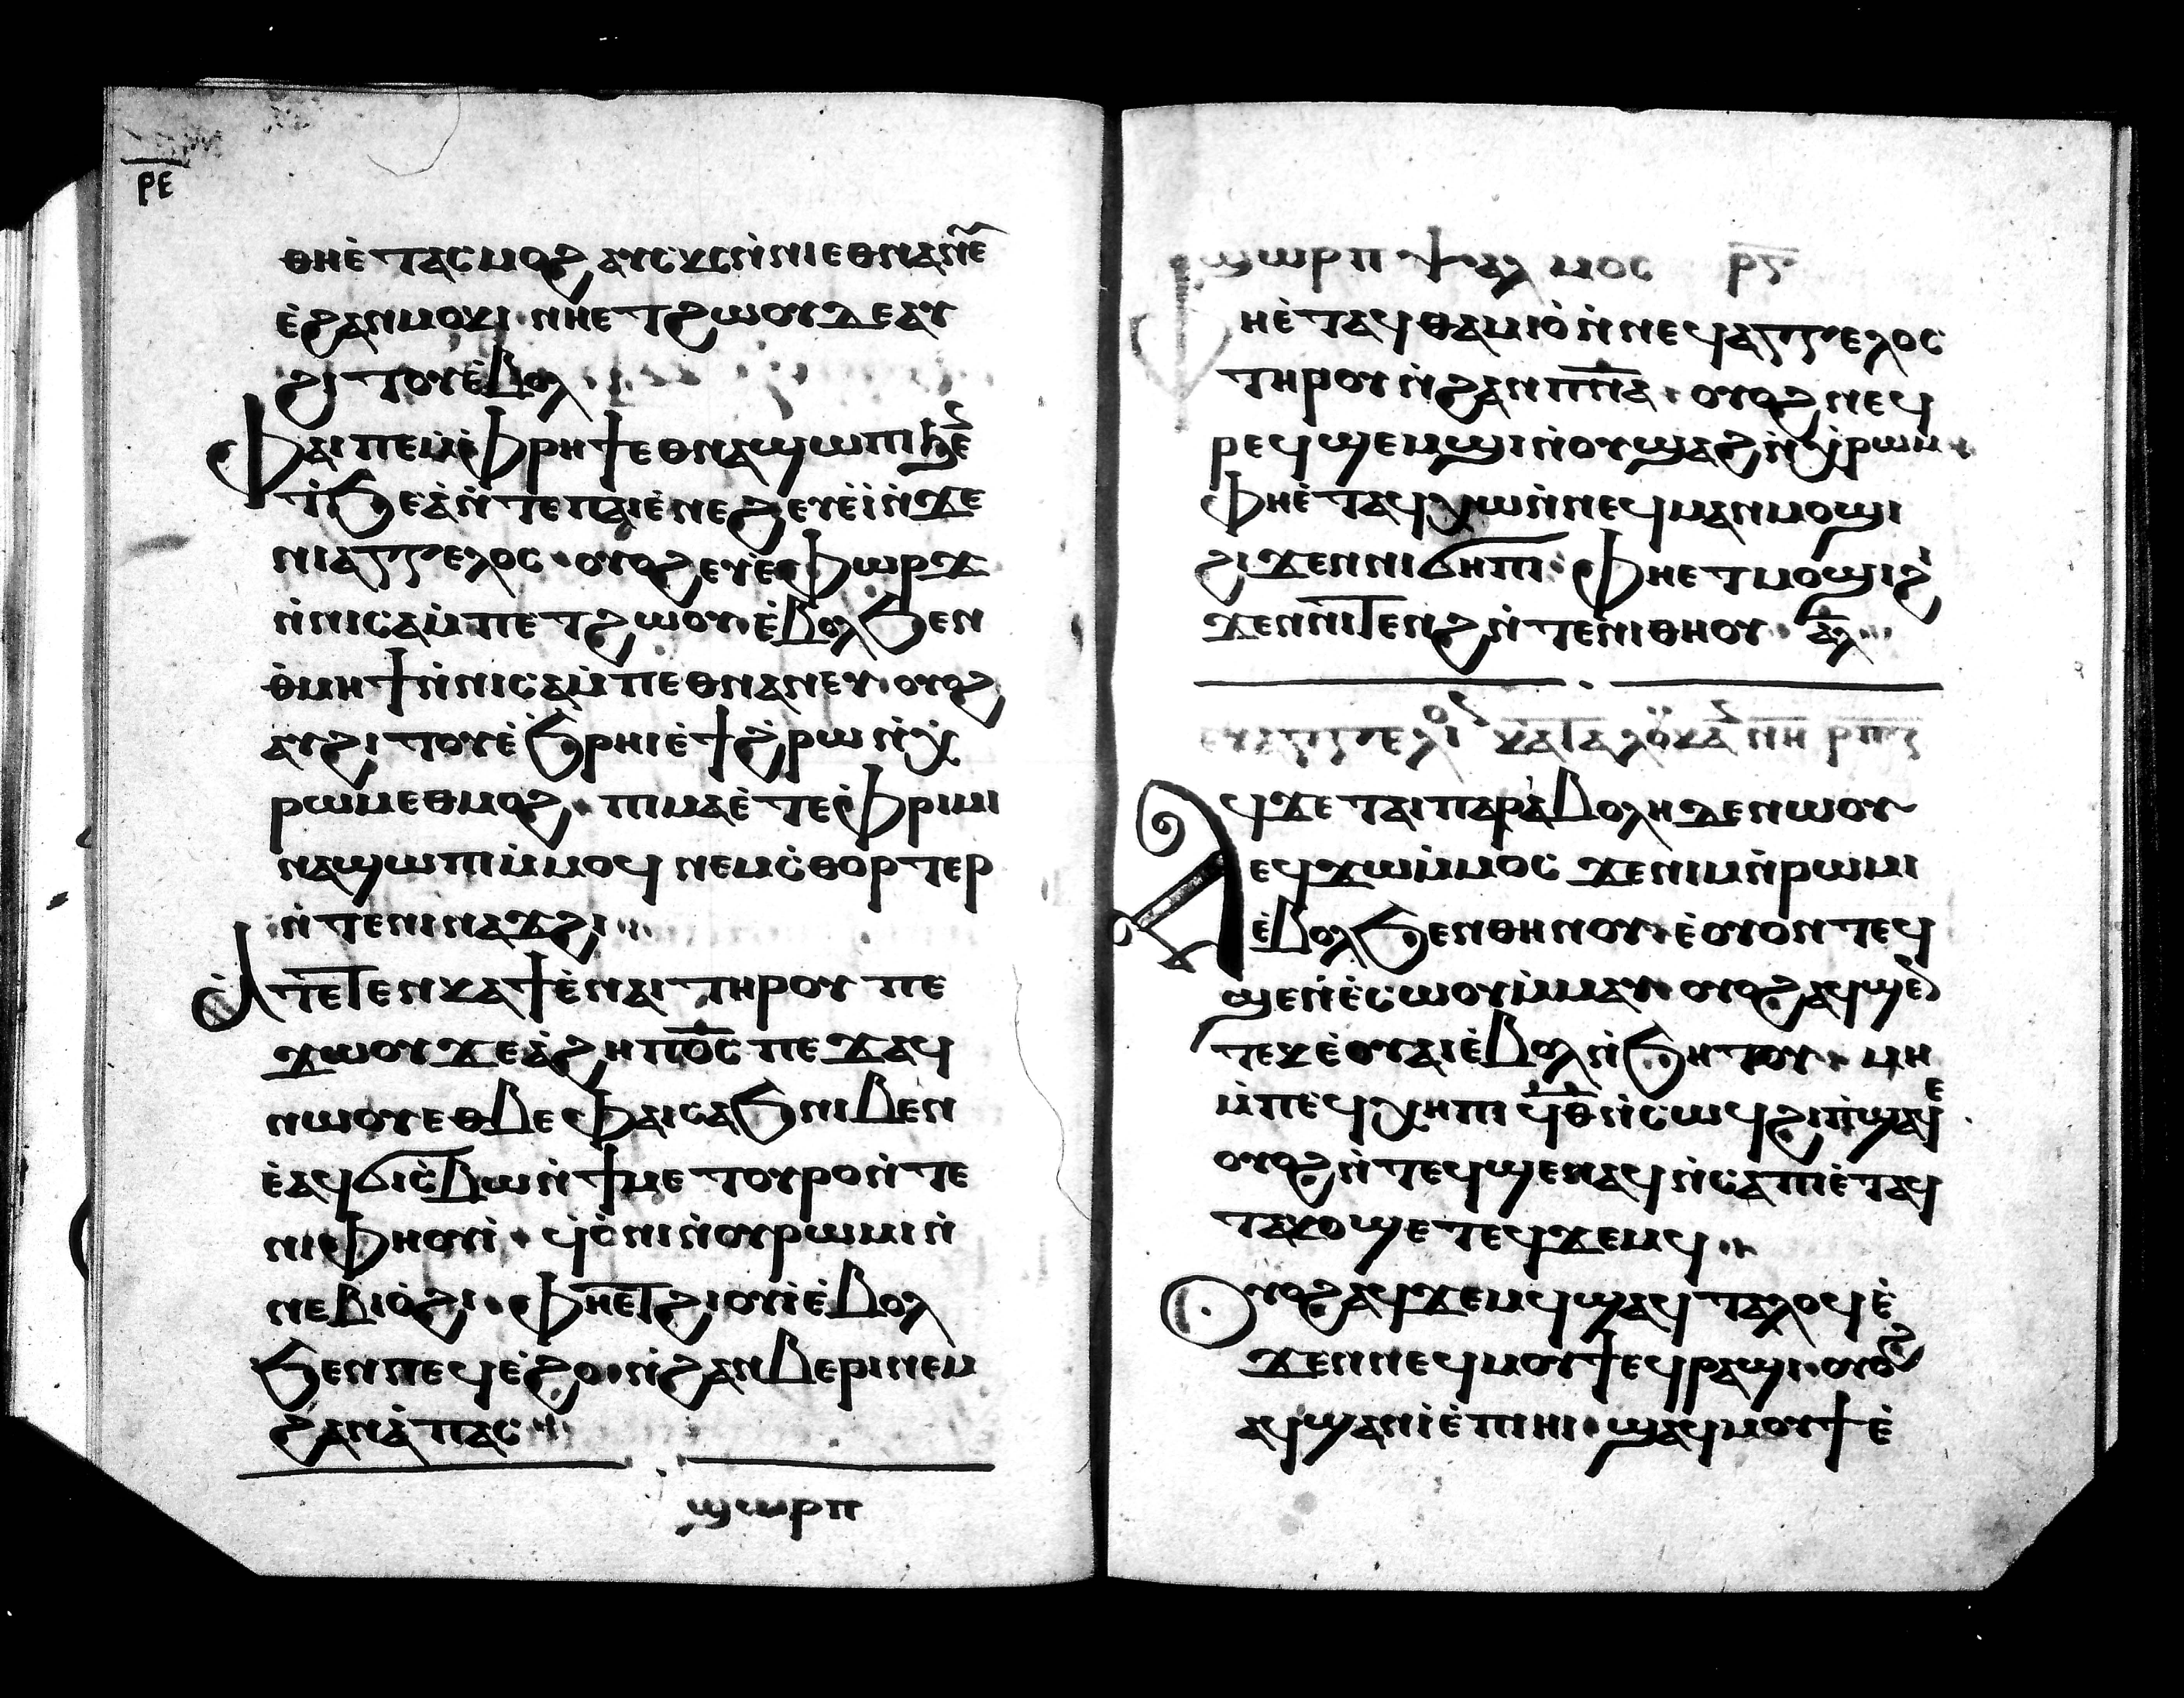 ⲣⲉ
ⲑⲏⲉ̀ⲧⲁⲥⲙⲟϩ ⲁⲩⲥⲕⲥⲛ̀ⲛⲓⲉⲑⲛⲁⲛⲉ
ⲉ̀ϩⲁⲛⲙⲟⲕⲓ · ⲛⲏⲉⲧϩⲱⲟⲩ ⲇⲉ ⲁⲩ
ϩⲓⲧⲟⲩⲉ̀ⲃⲟⲗ
ⲫⲁⲓ ⲡⲉ ⲙ̀ⲫⲣⲏϯ ⲉⲑⲛⲁϣⲱⲡⲓ ϧⲉ̀
ϯⲥ̀ϧⲉⲁ̀ ⲛ̀ⲧⲉ ⲡⲁⲓⲉ̀ⲛⲉϩ ⲉⲩⲉ̀ⲓ̀ ⲛ̀ϫⲉ
ⲛⲓⲁⲅⲅⲉⲗⲟⲥ · ⲟⲩⲟϩ ⲉⲩⲉ̀ⲫⲱⲣϫ
ⲛ̀ⲛⲓⲥⲁⲙ̀ⲡⲉⲧϩⲱⲟⲩ · ⲉ̀ⲃⲟⲗϧⲉⲛ
ⲑ̀ⲙⲏϯ ⲛ̀ⲛⲓⲥⲁⲙ̀ⲡⲉⲑⲛⲁⲛⲉⲩ · ⲟⲩⲟϩ
ⲁⲩϩⲓⲧⲟⲩ ⲉ̀ϧⲣⲏⲓ ⲉ̀ϯϩ̀ⲣⲱ ⲛ̀ⲭ̀
ⲣⲱⲙ ⲉⲑⲙⲟϩ · ⲡⲓⲙⲁ ⲉ̀ⲧⲉ ⲫ̀ⲣⲓⲙⲓ
ⲛⲁϣⲱⲡⲓ ⲙ̀ⲙⲟϥ ⲛⲉⲙ ⲥ̀ⲑⲟⲣⲧⲉⲣ
ⲛ̀ⲧⲉ ⲛⲓⲛⲁϫϩⲓ
ⲁ̀ⲧⲉⲧⲉⲛⲕⲁϯ ⲉ̀ⲛⲁⲓ ⲧⲏⲣⲟⲩ ⲡⲉ
ϫⲱⲟⲩ ϫⲉ ⲁ̀ϩⲏ ⲡⲟ̅ⲥ̅ ⲡⲉϫⲁϥ
ⲛⲱⲟⲩ ⲉⲑⲃⲉ ⲫⲁⲓ ⲥⲁϧ ⲛⲓⲃⲉⲛ
ⲉ̀ⲁϥϭⲓⲥ̀ⲃⲱ ⲛ̀ϯⲙⲉⲧⲟⲩⲣⲟ ⲛ̀ⲧⲉ
ⲛⲓⲫⲏⲟⲩⲓ̀ · ϥ̀ⲟ̀ⲛⲓ ⲛ̀ⲟⲩⲣⲱⲙⲓ ⲛ̀
ⲛⲉⲃⲓⲟ̀ϩⲓ · ⲫⲏⲉⲧϩⲓⲟⲩⲓ̀ ⲉ̀ⲃⲟⲗ
ϧⲉⲛ ⲡⲉϥⲉ̀ϩⲟ · ⲛ̀ϩⲁⲛⲃⲉⲣⲓ ⲛⲉⲙ
ϩⲁⲛⲁ̀ⲡⲁⲥ
ϣⲱⲣⲡ
ϣⲱⲣⲡ ⲯⲁⲗⲙⲟⲥ ⲣ̅ⲅ̅
ⲫⲏⲉ̀ⲧⲁϥⲑⲁⲙⲓⲟ̀ ⲛ̀ⲛⲉϥⲁⲅⲅⲉⲗⲟⲥ
ⲧⲏⲣⲟⲩ ⲛ̀ϩⲁⲛⲡ̅ⲛ̅ⲁ̅ · ⲟⲩⲟϩ ⲛⲉϥ
ⲣⲉϥϣⲉⲙϣⲓ ⲛ̀ⲟⲩϣⲁϩ ⲛ̀ⲭ̀ⲣⲱⲙ ·
ⲫⲏⲉ̀ⲧⲁϥⲭⲱ ⲛ̀ⲛⲉϥⲙⲁⲛⲙⲟϣⲓ
ϩⲓϫⲉⲛ ⲛⲓϭⲏⲡⲓ · ⲫⲏⲉⲧⲙⲟϣⲓ ϩⲓ̀
ϫⲉⲛ ⲛⲓⲧⲉⲛϩ ⲛ̀ⲧⲉ ⲛⲓⲑⲏⲟⲩ · ⲁ̅ⲗ̅
ⲉⲩⲁⲅⲅⲉⲗⲓⲟ ⲕⲁⲧⲁ ⲗⲟⲩⲕⲁⲛ ⲛⲏ ⲣⲡⲋ
ⲁϥϫⲉ ⲧⲁⲓⲡⲁⲣⲁⲃⲟⲗⲏ ⲇⲉ ⲛⲱⲟⲩ
ⲉϥϫⲱ ⲙ̀ⲙⲟⲥ ϫⲉ ⲛⲓⲙ ⲛ̀ⲣⲱⲙⲓ
ⲉ̀ⲃⲟⲗϧⲉⲛ ⲑⲏⲛⲟⲩ · ⲉ̀ⲟⲩⲟⲛⲧⲉϥ
ϣⲉ ⲛ̀ⲉ̀ⲥⲱⲟⲩ ⲙ̀ⲙⲁⲩ · ⲟⲩⲟϩ ⲁϥϣⲉ̀
ⲧⲉⲕⲉ̀ ⲟⲩⲁⲓ ⲉ̀ⲃⲟⲗ ⲛ̀ϧⲏⲧⲟⲩ · ⲙⲏ
ⲙ̀ⲡⲉϥⲭⲏ ⲡⲓϥ̅ⲑ̅ ⲛ̀ⲥⲱϥ ϩⲓ ⲡⲓϣⲁϥⲉ
ⲟⲩⲟϩ ⲛ̀ⲧⲉϥϣⲉⲛⲁϥ ⲛ̀ⲥⲁ ⲡⲓⲉ̀ⲧⲁϥ
ⲧⲁⲕⲟ ϣⲉⲧⲉϥϫⲉⲙϥ
ⲟⲩⲟϩ ⲁϥϫⲉⲙϥ ϣⲁϥⲧⲁⲗⲟϥ ⲉ̀
ϫⲉⲛ ⲛⲉϥⲙⲟⲩϯ ⲉϥⲣⲁϣⲓ · ⲟⲩⲟϩ
ⲁϥϣⲁⲛⲓ̀ ⲉ̀ⲡⲓⲏⲓ · ϣⲁϥⲙⲟⲩϯ ⲉ̀